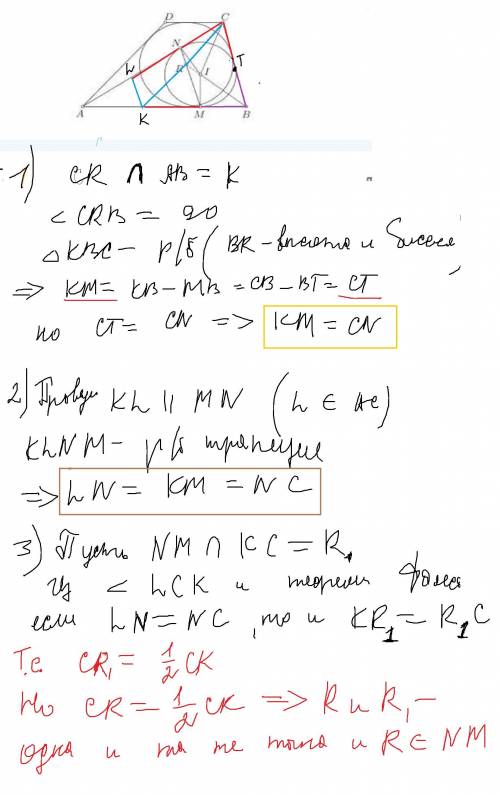 D C
N T
L R I
A K M B
1) CR ∩ AB = K
< CRB = 90
△ KBC – р/б ( BR – высота и биссек
=> KM = KB – MB = CB – BT = CT
но CT = CN => KM = CN
2) Провед KL || MN (L ∈ AC)
KLNM – р/б трапеция
=> LN = KM = NC
3) Пусть NM ∩ KC = R₁
Из < LCK и теоремы Фалеса
если LN = NC, то и KR₁ = R₁C
Т.е CR₁ = 1/2 CK
Но CR = 1/2 CK => R и R₁ –
одна и та же точка и R ∈ NM